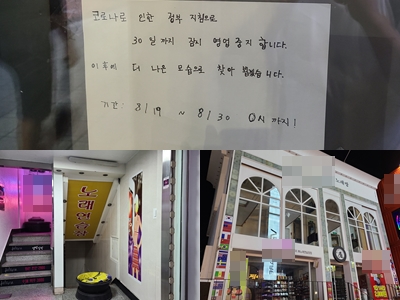 코로나로 인한 정부 지침으로
30일 까지 잠시 영업중지 합니다.
이후에 더 나은 모습으로 찾아 뵙겠습니다.
기간: 8/19 ~ 8/30 0시 까지!
노래연습장
노래방